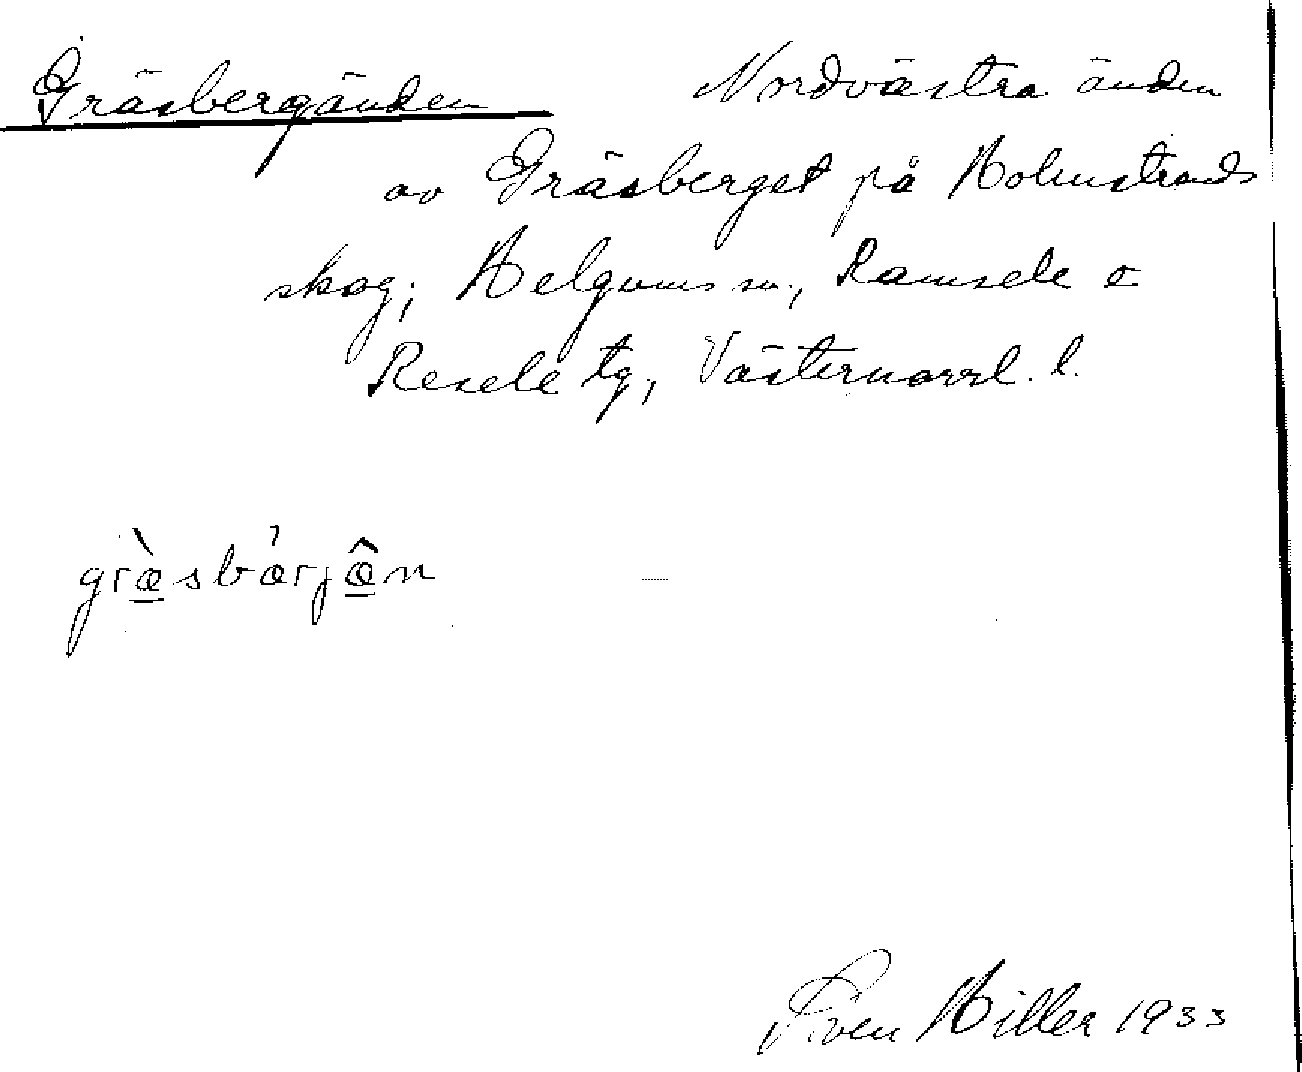 Gräsbergänden Nordvästra änden
av Gräsberget på Holmstrands
skog, Helgums sn., Ramsele o
Resele tg, Västernorrl. l.
græ̀sbærjæ̂n
Sven Hiller 1933